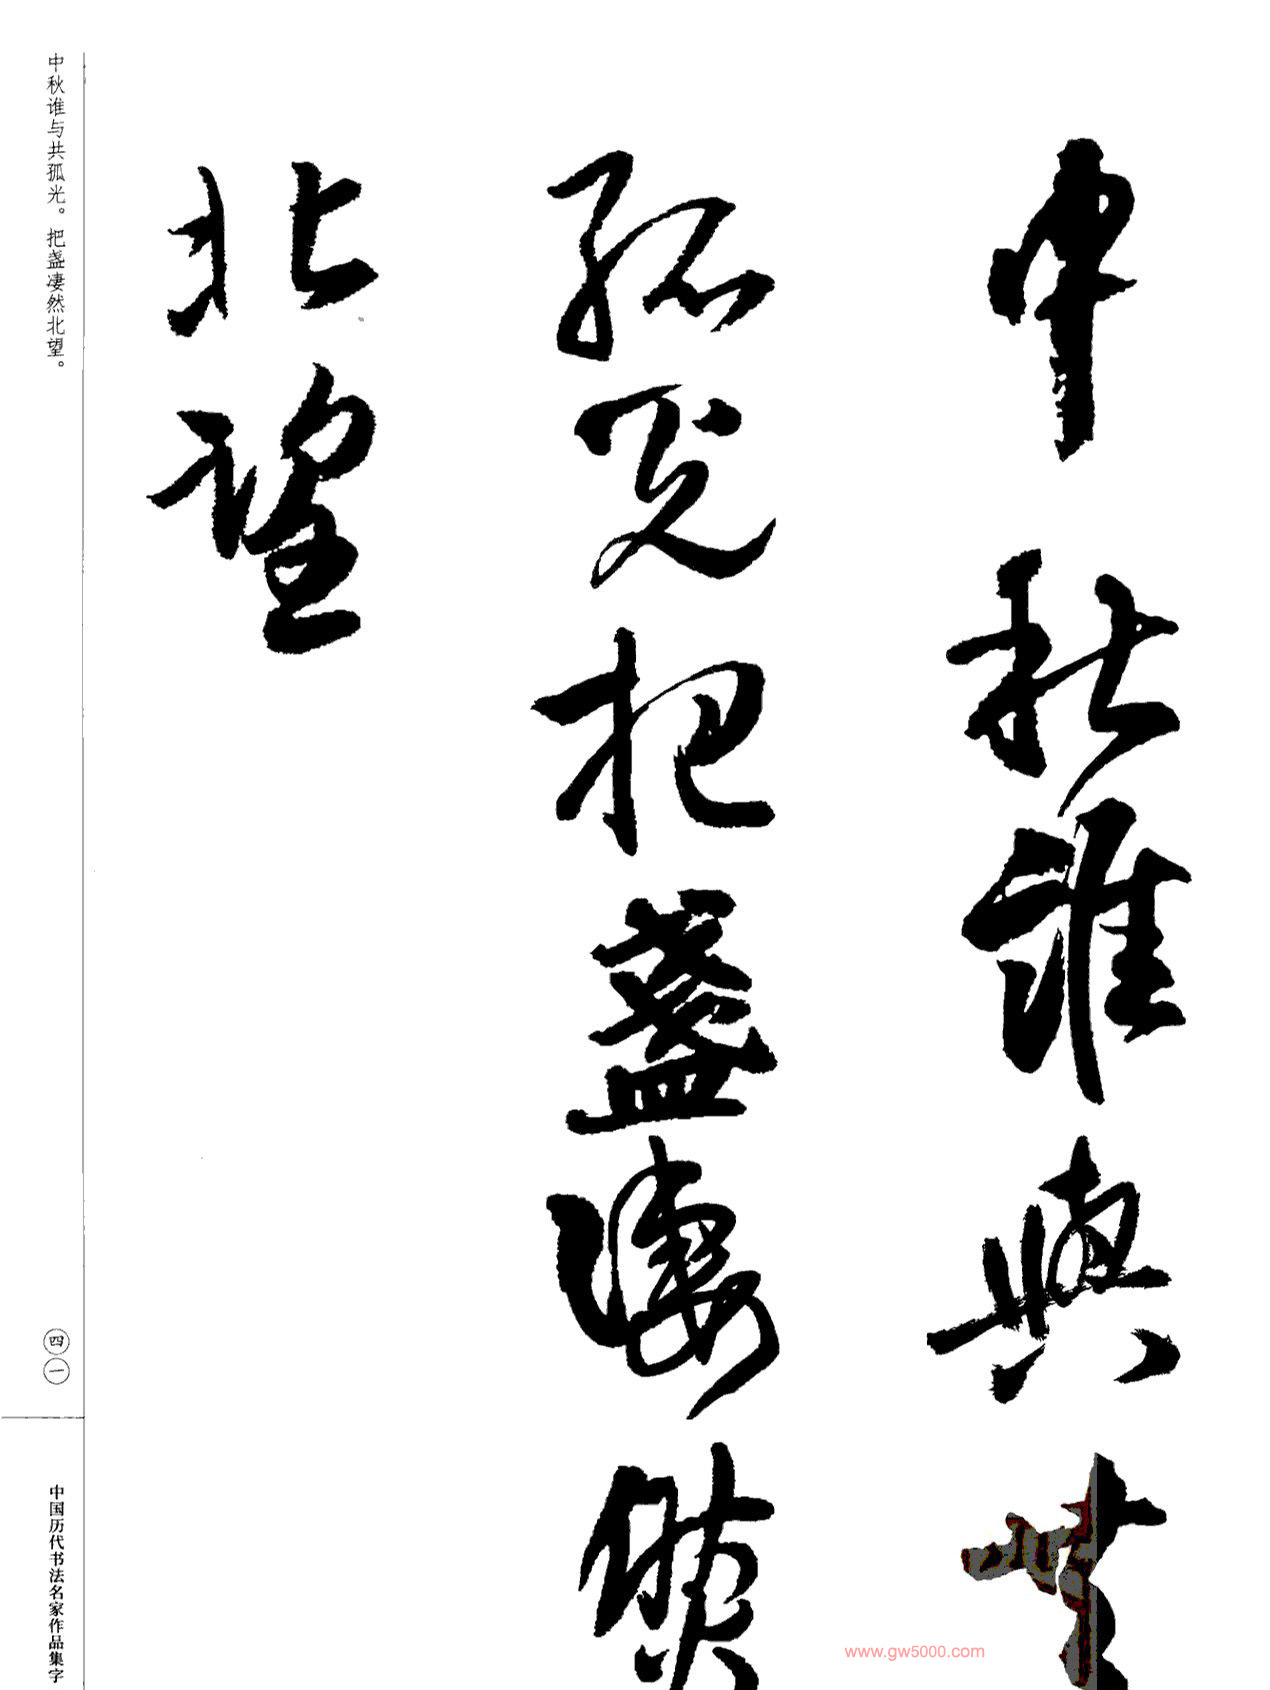 中秋誰與共
孤光把盞凄然
北望
中秋谁与共孤光。把盏凄然北望。
四一
中国历代书法名家作品集字
www.gw5000.com